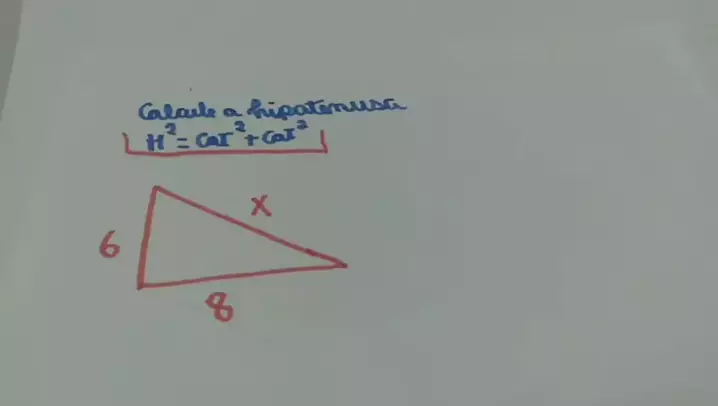 Calcule a hipotenusa
H² = CAT² + CAT²
x
6
8